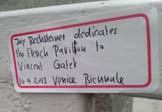 Jay Rechsteiner dedicates
the French Pavilion to
Vincent Galet
10.9.2013 Venice Biennale